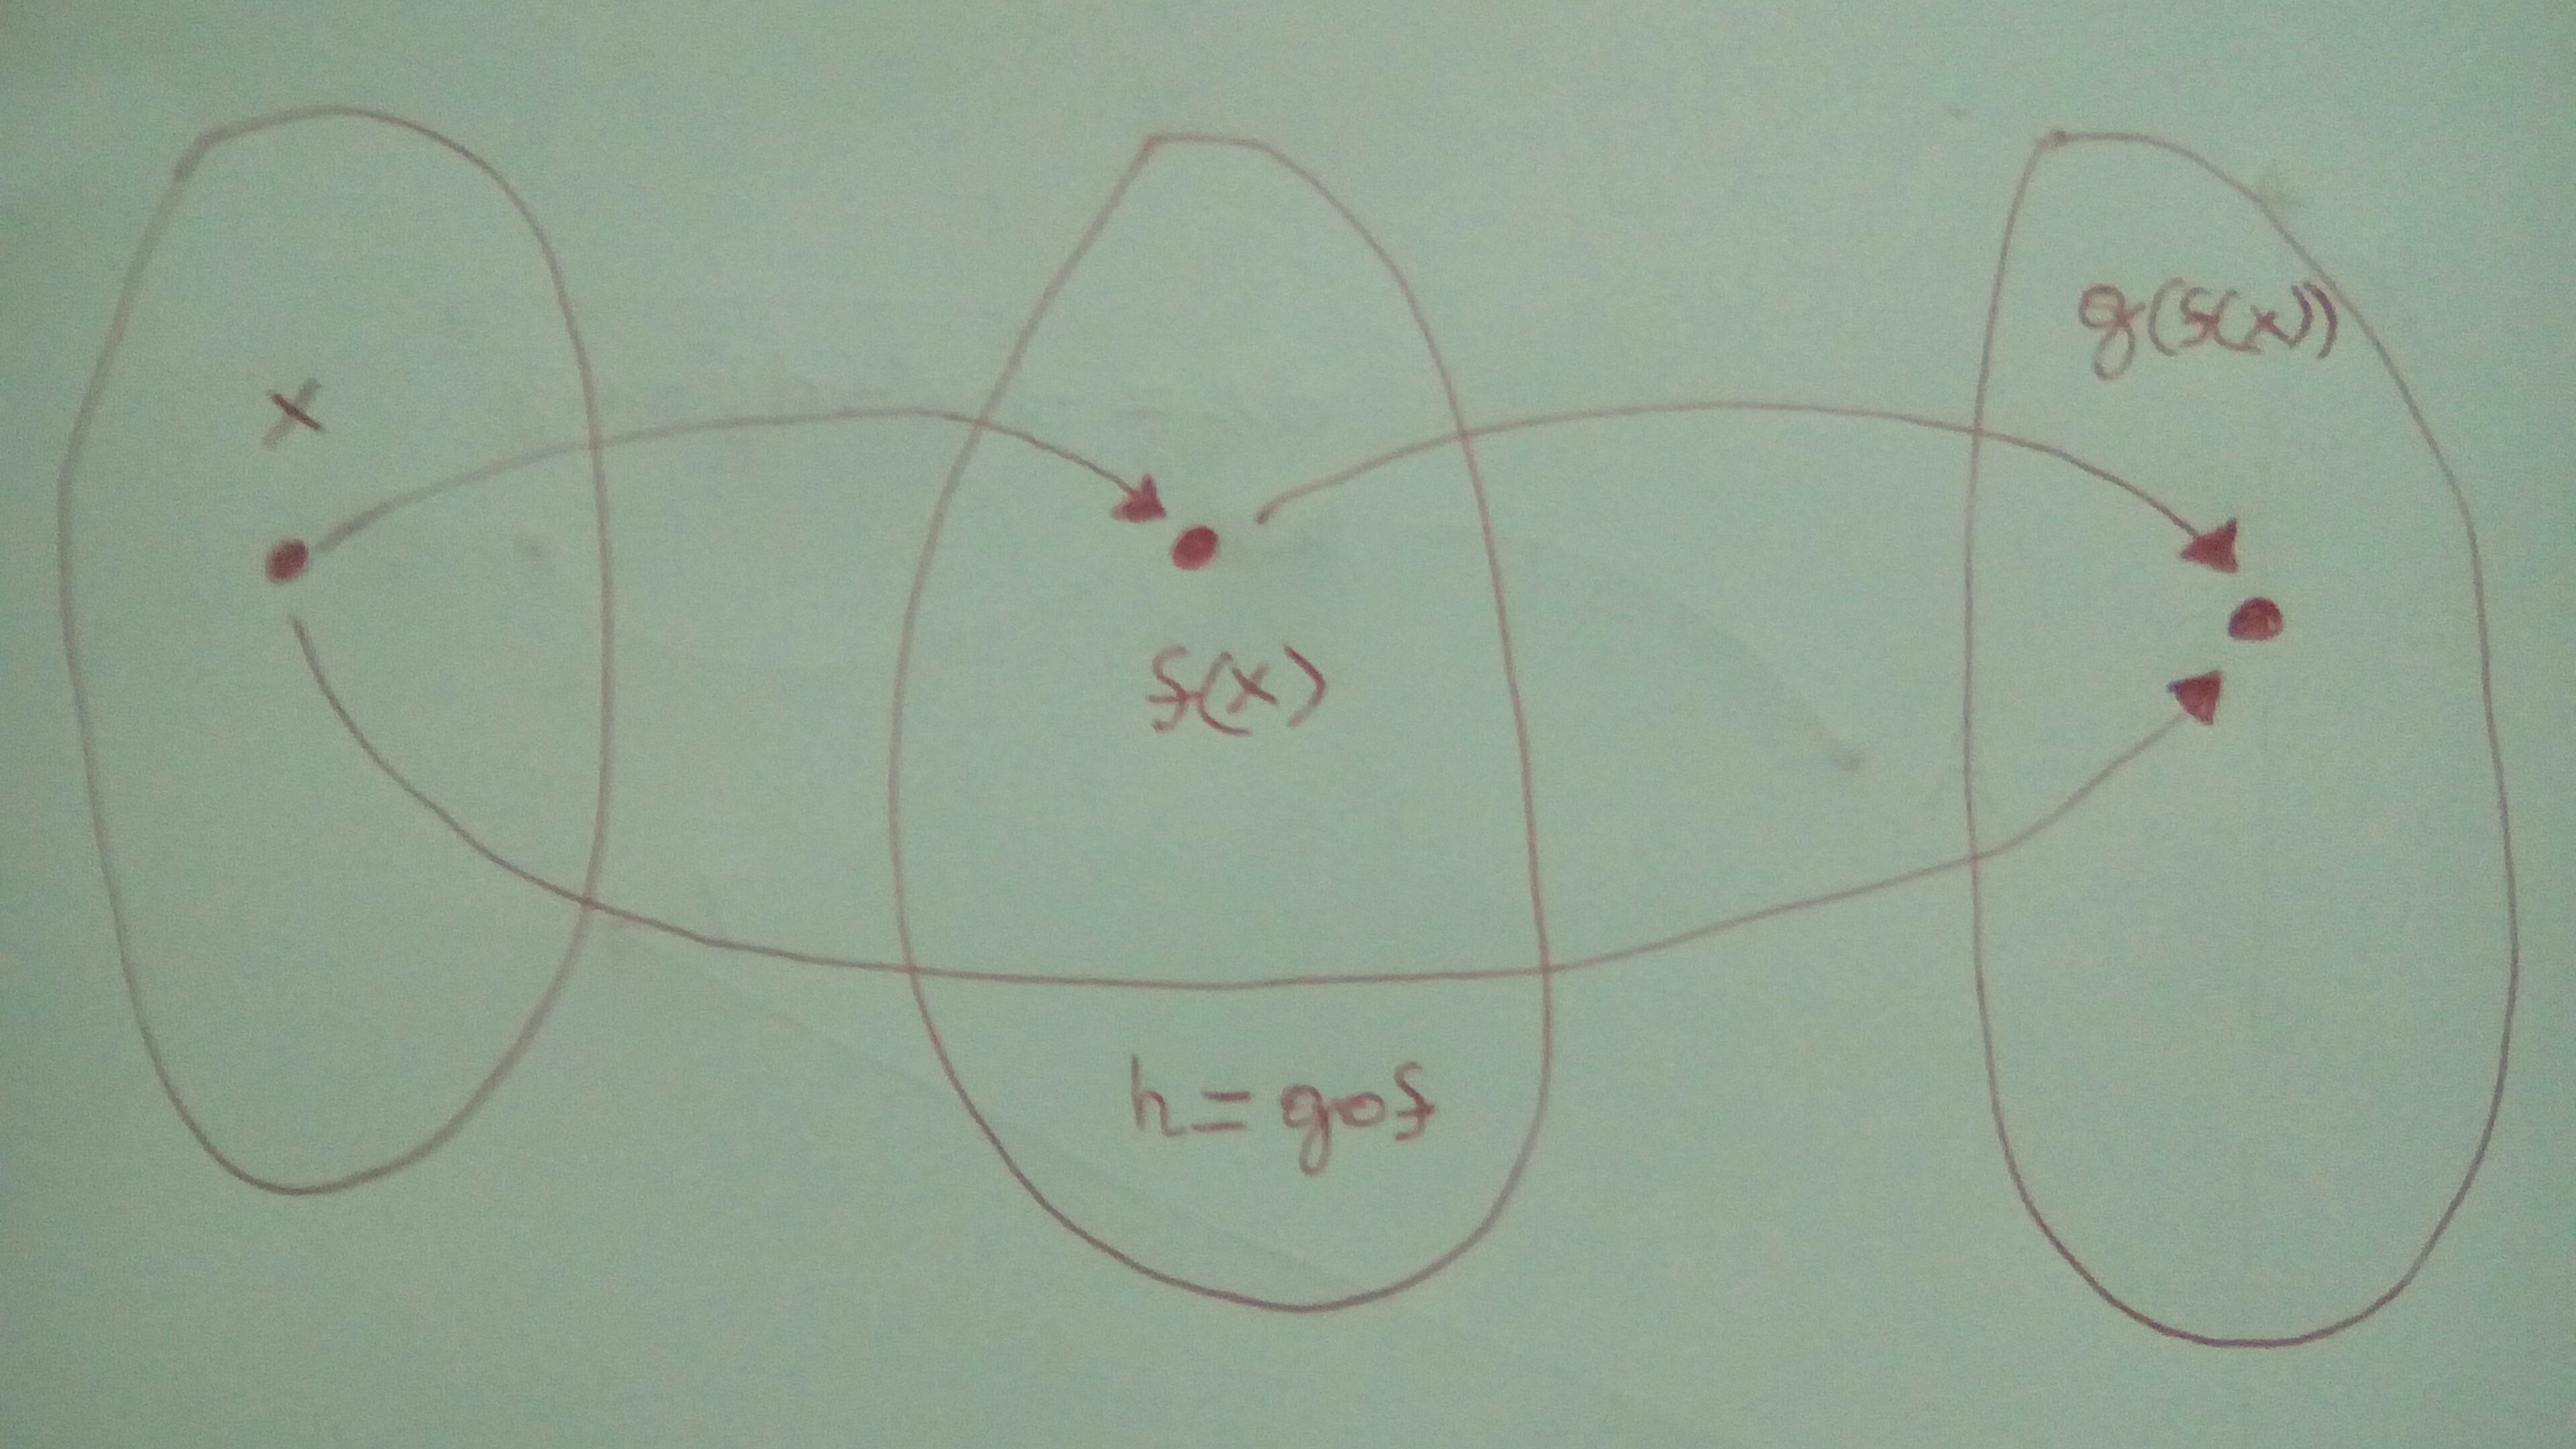 x
f(x)
g(f(x))
h = gof